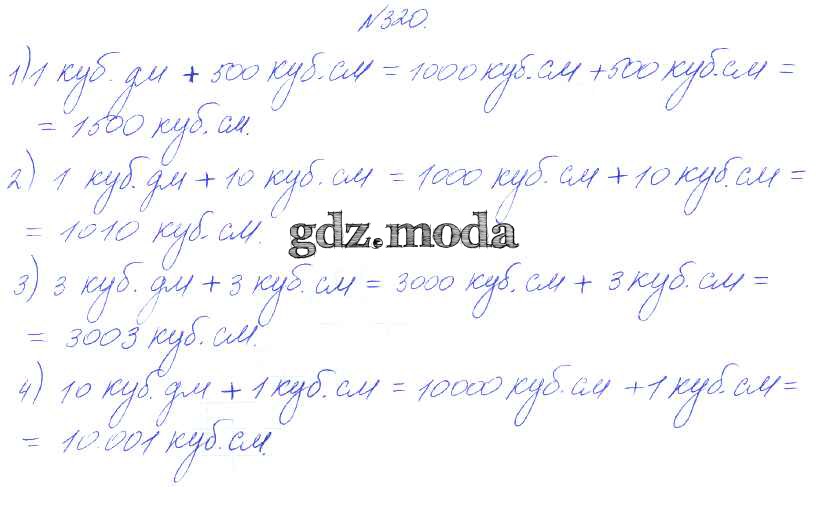 №320.
1) 1 куб. дм + 500 куб.см = 1000 куб.см + 500 куб.см =
= 1500 куб.см.
2) 1 куб.дм + 10 куб.см = 1000 куб.см + 10 куб.см =
= 1010 куб.см.
gdz.moda
3) 3 куб. дм + 3 куб.см = 3000 куб.см + 3 куб.см =
= 3003 куб.см.
4) 10 куб.дм + 1 куб.см = 10000 куб.см + 1 куб.см =
= 10.001 куб.см.